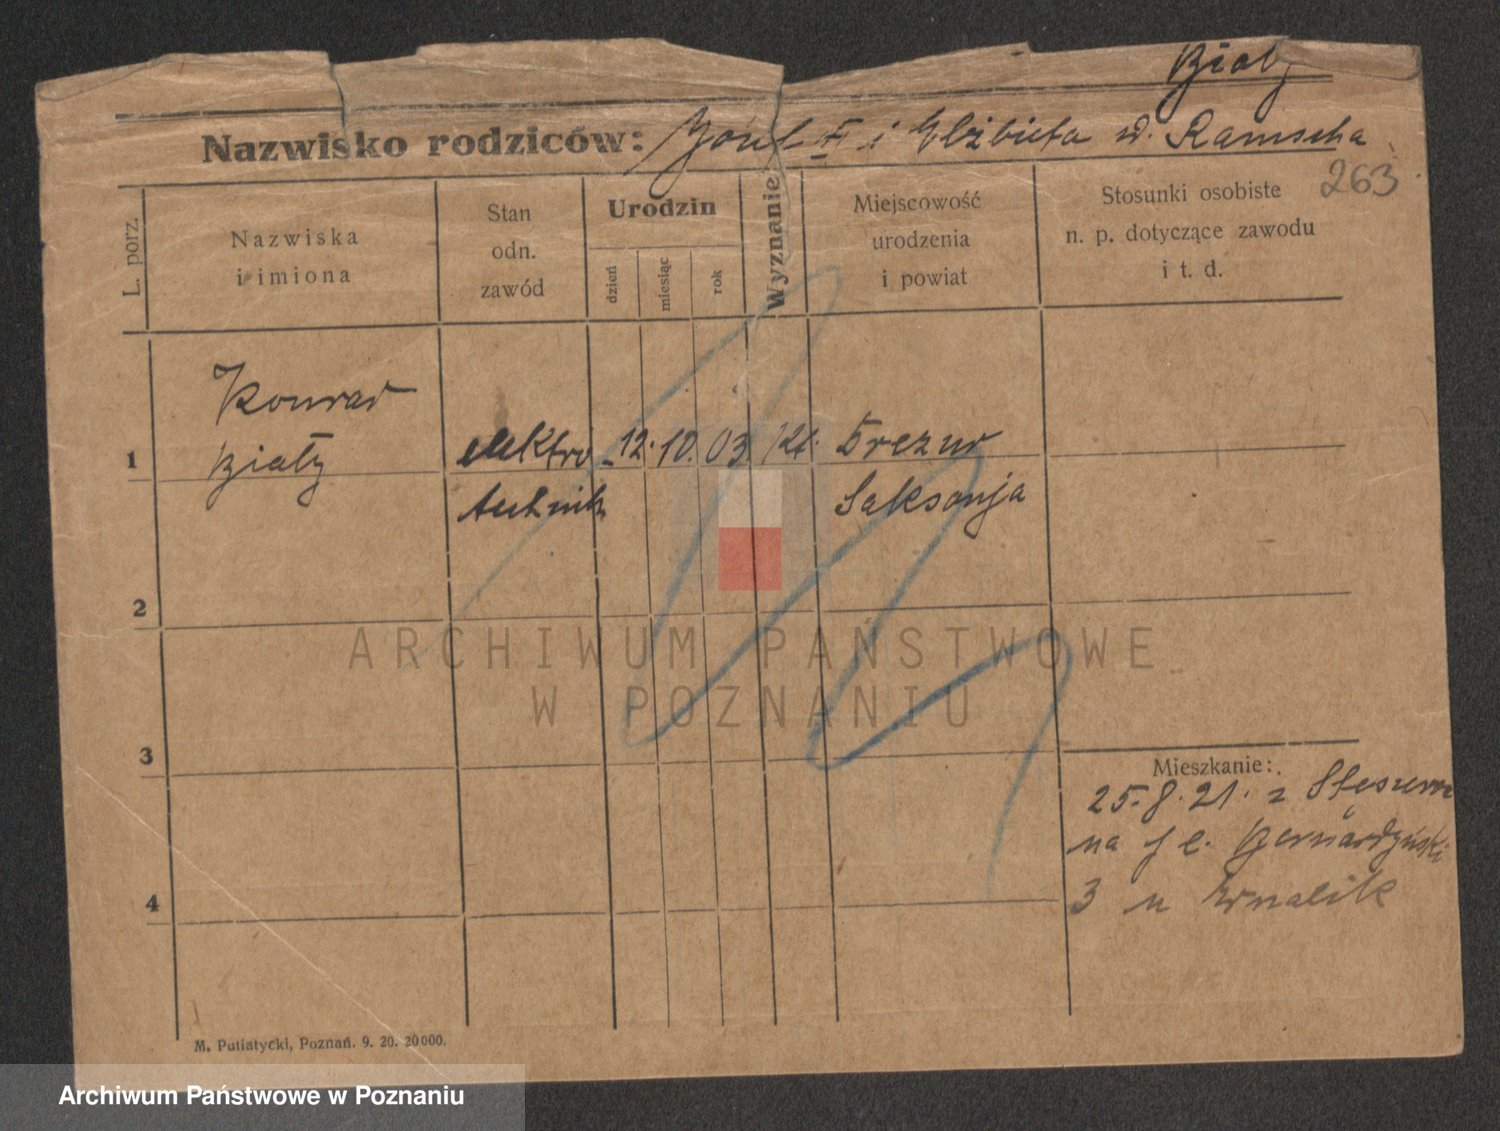 Biały
Nazwisko rodziców: Józef i Elżbieta d. Ramscha
263
L. porz.
Nazwiska
i imiona
Stan
odn.
zawód
Urodzin
dzień
miesiąc
rok
Wyznanie
Miejscowość
urodzenia
i powiat
Stosunki osobiste
n. p. dotyczące zawodu
i t. d.
Konrad
1 Biały elektro- 12. 10. 03 kt. Drezno
technik Saksonja
2
3
4
Mieszkanie:
25.8.21. z Stęszewa
na Pl. Bernardyński
3 u
M. Putiatycki, Poznań. 9. 20. 20000.
ARCHIWUM PAŃSTWOWE
W POZNANIU
Archiwum Państwowe w Poznaniu